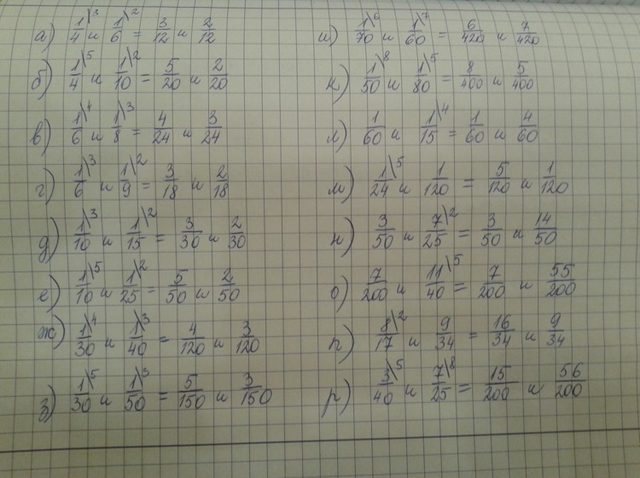 а) 1\³/4 и 1\²/6 = 3/12 и 2/12
б) 1\⁵/4 и 1\²/10 = 5/20 и 2/20
в) 1\⁴/6 и 1\³/8 = 4/24 и 3/24
г) 1\³/6 и 1\²/9 = 3/18 и 2/18
д) 1\³/10 и 1\²/15 = 3/30 и 2/30
е) 1\⁵/10 и 1\²/25 = 5/50 и 2/50
ж) 1\⁴/30 и 1\³/40 = 4/120 и 3/120
з) 1\⁵/30 и 1\³/50 = 5/150 и 3/150
и) 1\⁶/70 и 1\⁷/60 = 6/420 и 7/420
к) 1\⁸/50 и 1\⁵/80 = 8/400 и 5/400
л) 1/60 и 1\⁴/15 = 1/60 и 4/60
м) 1\⁵/24 и 1/120 = 5/120 и 1/120
н) 3/50 и 7\²/25 = 3/50 и 14/50
о) 7/200 и 11\⁵/40 = 7/200 и 55/200
п) 8\²/17 и 9/34 = 16/34 и 9/34
р) 3\⁵/40 и 7\⁸/25 = 15/200 и 56/200